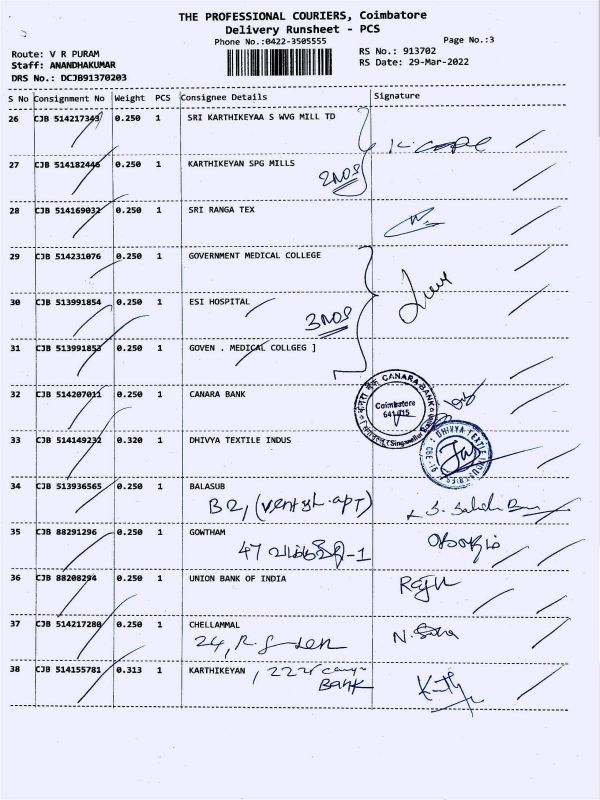 THE PROFESSIONAL COURIERS, Coimbatore
Delivery Runsheet - PCS
Phone No.:0422-3505555
Page No.:3
Route: V R PURAM
Staff: ANANDHAKUMAR
DRS No.: DCJB91370203
RS No.: 913702
RS Date: 29-Mar-2022
S No Consignment No Weight PCS Consignee Details Signature
26 CJB 514217343 0.250 1 SRI KARTHIKEYAA S WVG MILL TD
27 CJB 514182446 0.250 1 KARTHIKEYAN SPG MILLS
2NOS
28 CJB 514169032 0.250 1 SRI RANGA TEX
29 CJB 514231076 0.250 1 GOVERNMENT MEDICAL COLLEGE
30 CJB 513991854 0.250 1 ESI HOSPITAL
3NOS
31 CJB 513991853 0.250 1 GOVEN . MEDICAL COLLGEG ]
32 CJB 514207011 0.250 1 CANARA BANK
CANARA BANK
Coimbatore
641 015
33 CJB 514149232 0.320 1 DHIVYA TEXTILE INDUS
DHIVYA TEXTILE INDUSTRIES
34 CJB 513936565 0.250 1 BALASUB
B2,
35 CJB 88291296 0.250 1 GOWTHAM
47
36 CJB 88208294 0.250 1 UNION BANK OF INDIA
37 CJB 514217280 0.250 1 CHELLAMMAL
24,
38 CJB 514155781 0.313 1 KARTHIKEYAN
BANK